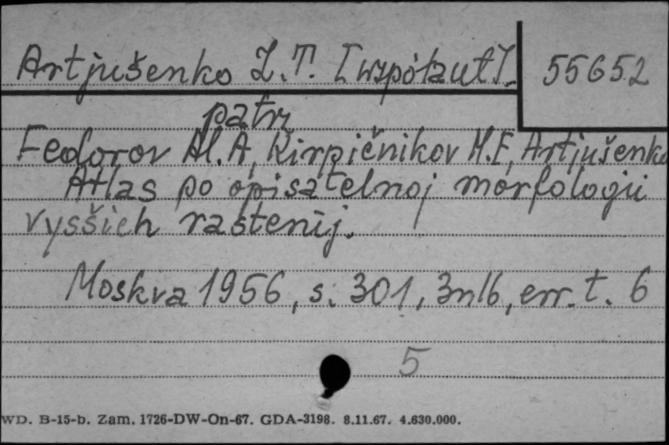 Artjušenko Z.T. [współaut]. 55652
patrz
Fedorov Al. A, Kirpičnikov M.E, Artjušenko
Atlas po opisatelnoj morfologii
vysšich rastenij.
Moskva 1956, s. 301, 3nlb, err. t. 6
5
WD. B-15-b. Zam. 1726-DW-On-67. GDA-3198. 8.11.67. 4.630.000.